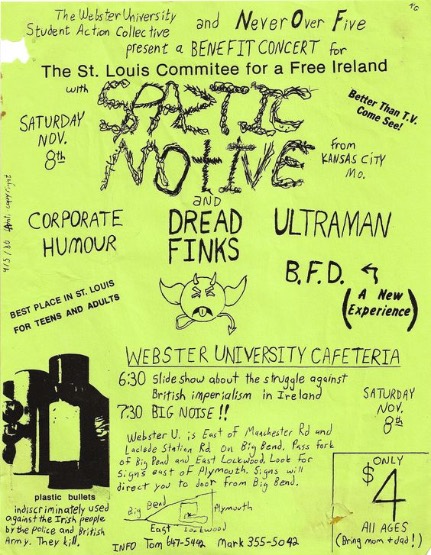 The Webster University
Student Action Collective
and Never Over Five
present a BENEFIT CONCERT for
The St. Louis Commitee for a Free Ireland
with
SPASTIC
MOTIVE
SATURDAY
NOV.
8th
Better Than T.V.
Come See!
from
KANSAS CITY
MO.
and
CORPORATE
HUMOUR
DREAD
FINKS
ULTRAMAN
B.F.D.
(A New
Experience)
BEST PLACE IN ST. LOUIS
FOR TEENS AND ADULTS
WEBSTER UNIVERSITY CAFETERIA
6:30 Slide show about the struggle against
British imperialism in Ireland
7:30 BIG NOISE!!
SATURDAY
NOV.
8th
Webster U. is East of Manchester Rd and
Laclede Station Rd on Big Bend. Pass fork
of Big Bend and East Lockwood. Look for
signs east of Plymouth. Signs will
direct you to door from Big Bend.
Big Bend
Plymouth
East Lockwood
plastic bullets
indiscriminately used
against the Irish people
by the police and British
Army. They kill.
ONLY
$4
ALL AGES
(Bring mom + dad!)
INFO Tom 647-5442 Mark 355-5042